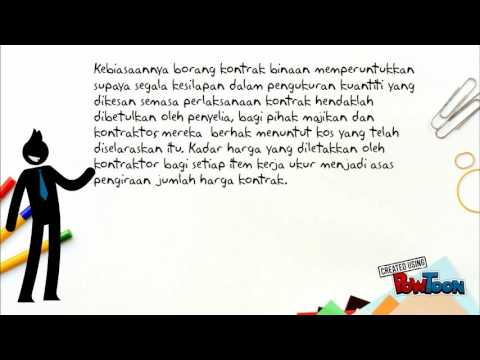 Kebiasaannya borang kontrak binaan memperuntukkan
supaya segala kesilapan dalam pengukuran kuantiti yang
dikesan semasa perlaksanaan kontrak hendaklah
dibetulkan oleh penyelia, bagi pihak majikan dan
kontraktor, mereka berhak menuntut kos yang telah
diselaraskan itu. Kadar harga yang diletakkan oleh
kontraktor bagi setiap item kerja ukur menjadi asas
pengiraan jumlah harga kontrak.
CREATED USING
POWTOON